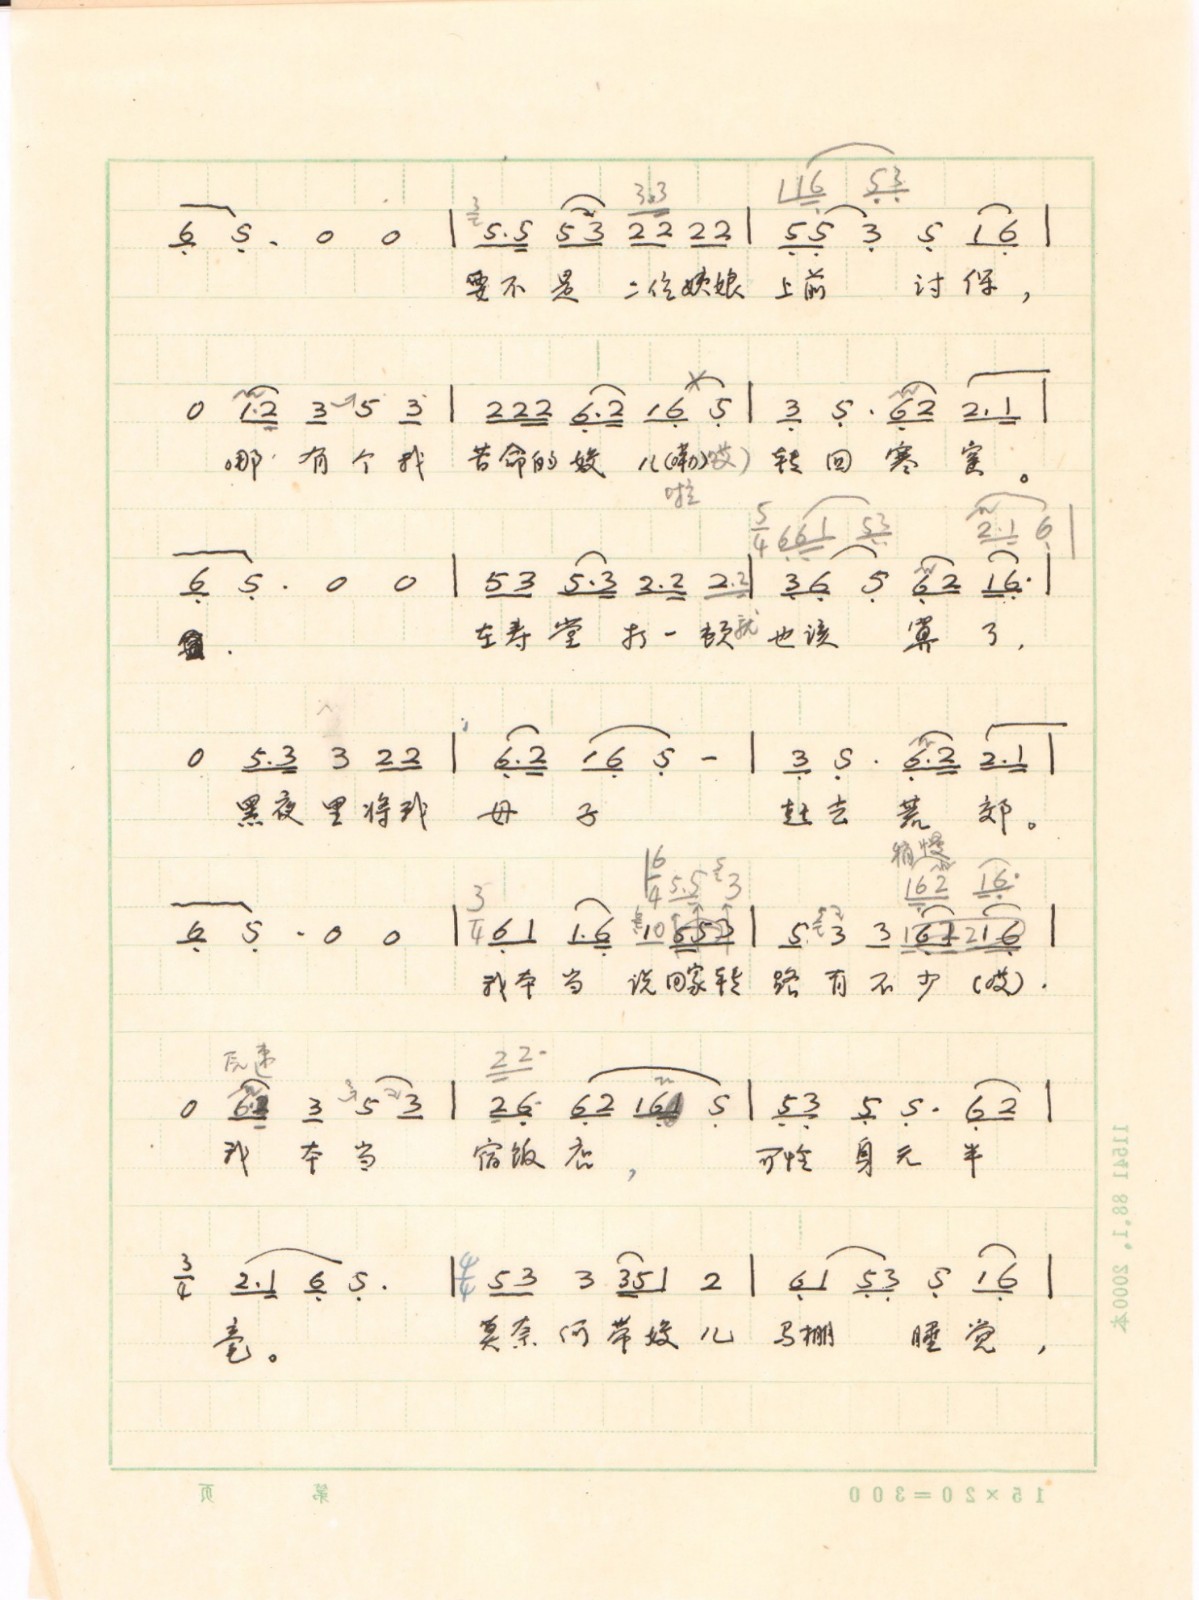 116 53
3 3.3
6 5 . 0 0 | 5.5 53 22 22 | 55 3 5 16 |
要不是 二位姨娘 上前 讨保，
0 1.2 3 5 3 | 222 6.2 16 5 | 3 5 . 62 2.1 |
哪 有 个 我 苦命的嫂 儿(嘞)哎) 转 回 寒 窑。
啦
5/4 661 53 2.1 6 |
6 5 . 0 0 | 53 5.3 2.2 2.2 | 36 5 62 16. |
在寿堂 打一顿就 也该 算 了，
0 5.3 3 22 | 6.2 16 5 - | 3 5 . 6.2 2.1 |
黑夜里将我 母 子 赶 去 荒 郊。
稍慢
6/4 5.5 3 162 16.
6 5 . 0 0 | 3/4 61 1.6 10 653 | 5 3 3
我本当 说回家转 路有不少(哎).
原速
2 2.
0 3 5 3 | 26. 62 5 | 53 5 5. 62 |
我 本 当 宿饭店， 可怜 身无 半
3/4 2.1 6 5. | 4/4 53 3 351 2 | 61 53 5 16 |
毫。 莫奈何带嫂儿 马棚 睡觉，
第 页
15×20=300
11541 88.1. 2000本